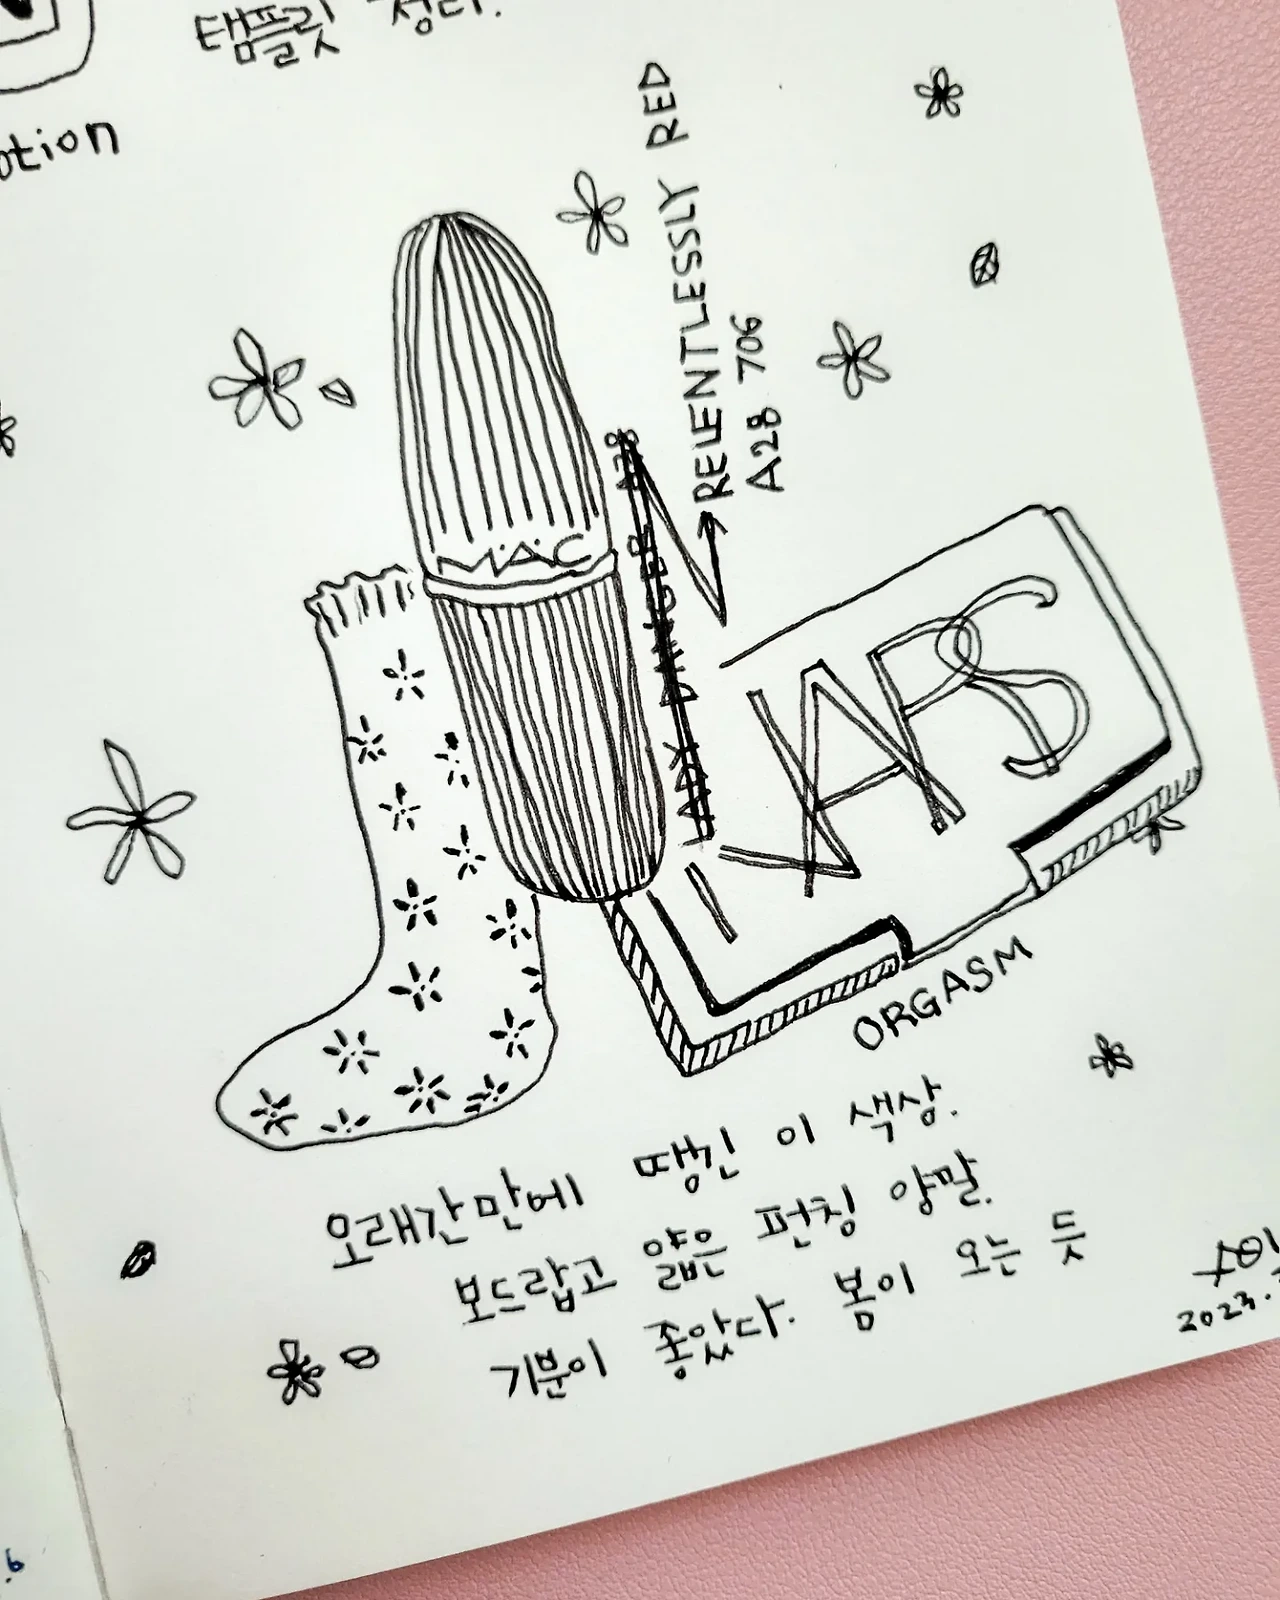 템플릿 정리.
otion
RELENTLESSLY RED
A28 706
LADY DANGER A28
MAC
NARS
ORGASM
오래간만에 땡긴 이 색상.
보드랍고 얇은 펀칭 양말.
기분이 좋았다. 봄이 오는 듯
2023.